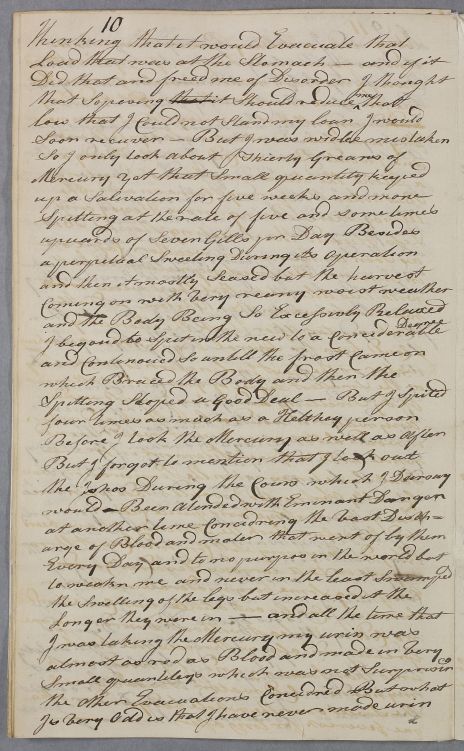 10
Thinking that it would Evacuate that
Load that was at the Stomach — and if it
Did that and freed me of Disorder I thought
that Soposing it Should reduce me that
low that I Could not Stand my loan I would
Soon recuver — But I was widlee mistaken
So I only took about Thierty Greans of
Mercury Yet that Small quantity keped
up a Salivation for five weeks and more
Spitting at the rate of five and sometimes
upwards of Seven Gills pr Day Besides
a perpetual Sweeting During its operation
and then it mostly Seased but the harvest
Coming on with very reany moist weather
and the Body Being So Excessively Relaxed
I begoud to Sput in the new to a Considerable Degree
and Contenoued So untill the frost Came on
which Braced the Body and then the
Spitting Stoped a Good Deal — But I Spited
four times as much as a Helthey person
Before I took the Mercury as well as After
But I forgot to mention that I took out
the Ishos During the Cours which I Darsay
would Been atended with Eminant Danger
at another time Concidring the vast Disch-
arge of Blood and mater that went of by them
Every Day and to no purpos in the world but
to weakn me and never in the least
the Swelling of the legs but increased it the
Longer they were in — and all the time that
I was taking the Mercury my urin was
almost as rod as Blood and made in very
Small quantitys which was not Surprising
the other Evacuations Concidred But what
Is very Odd is that I have never made urin